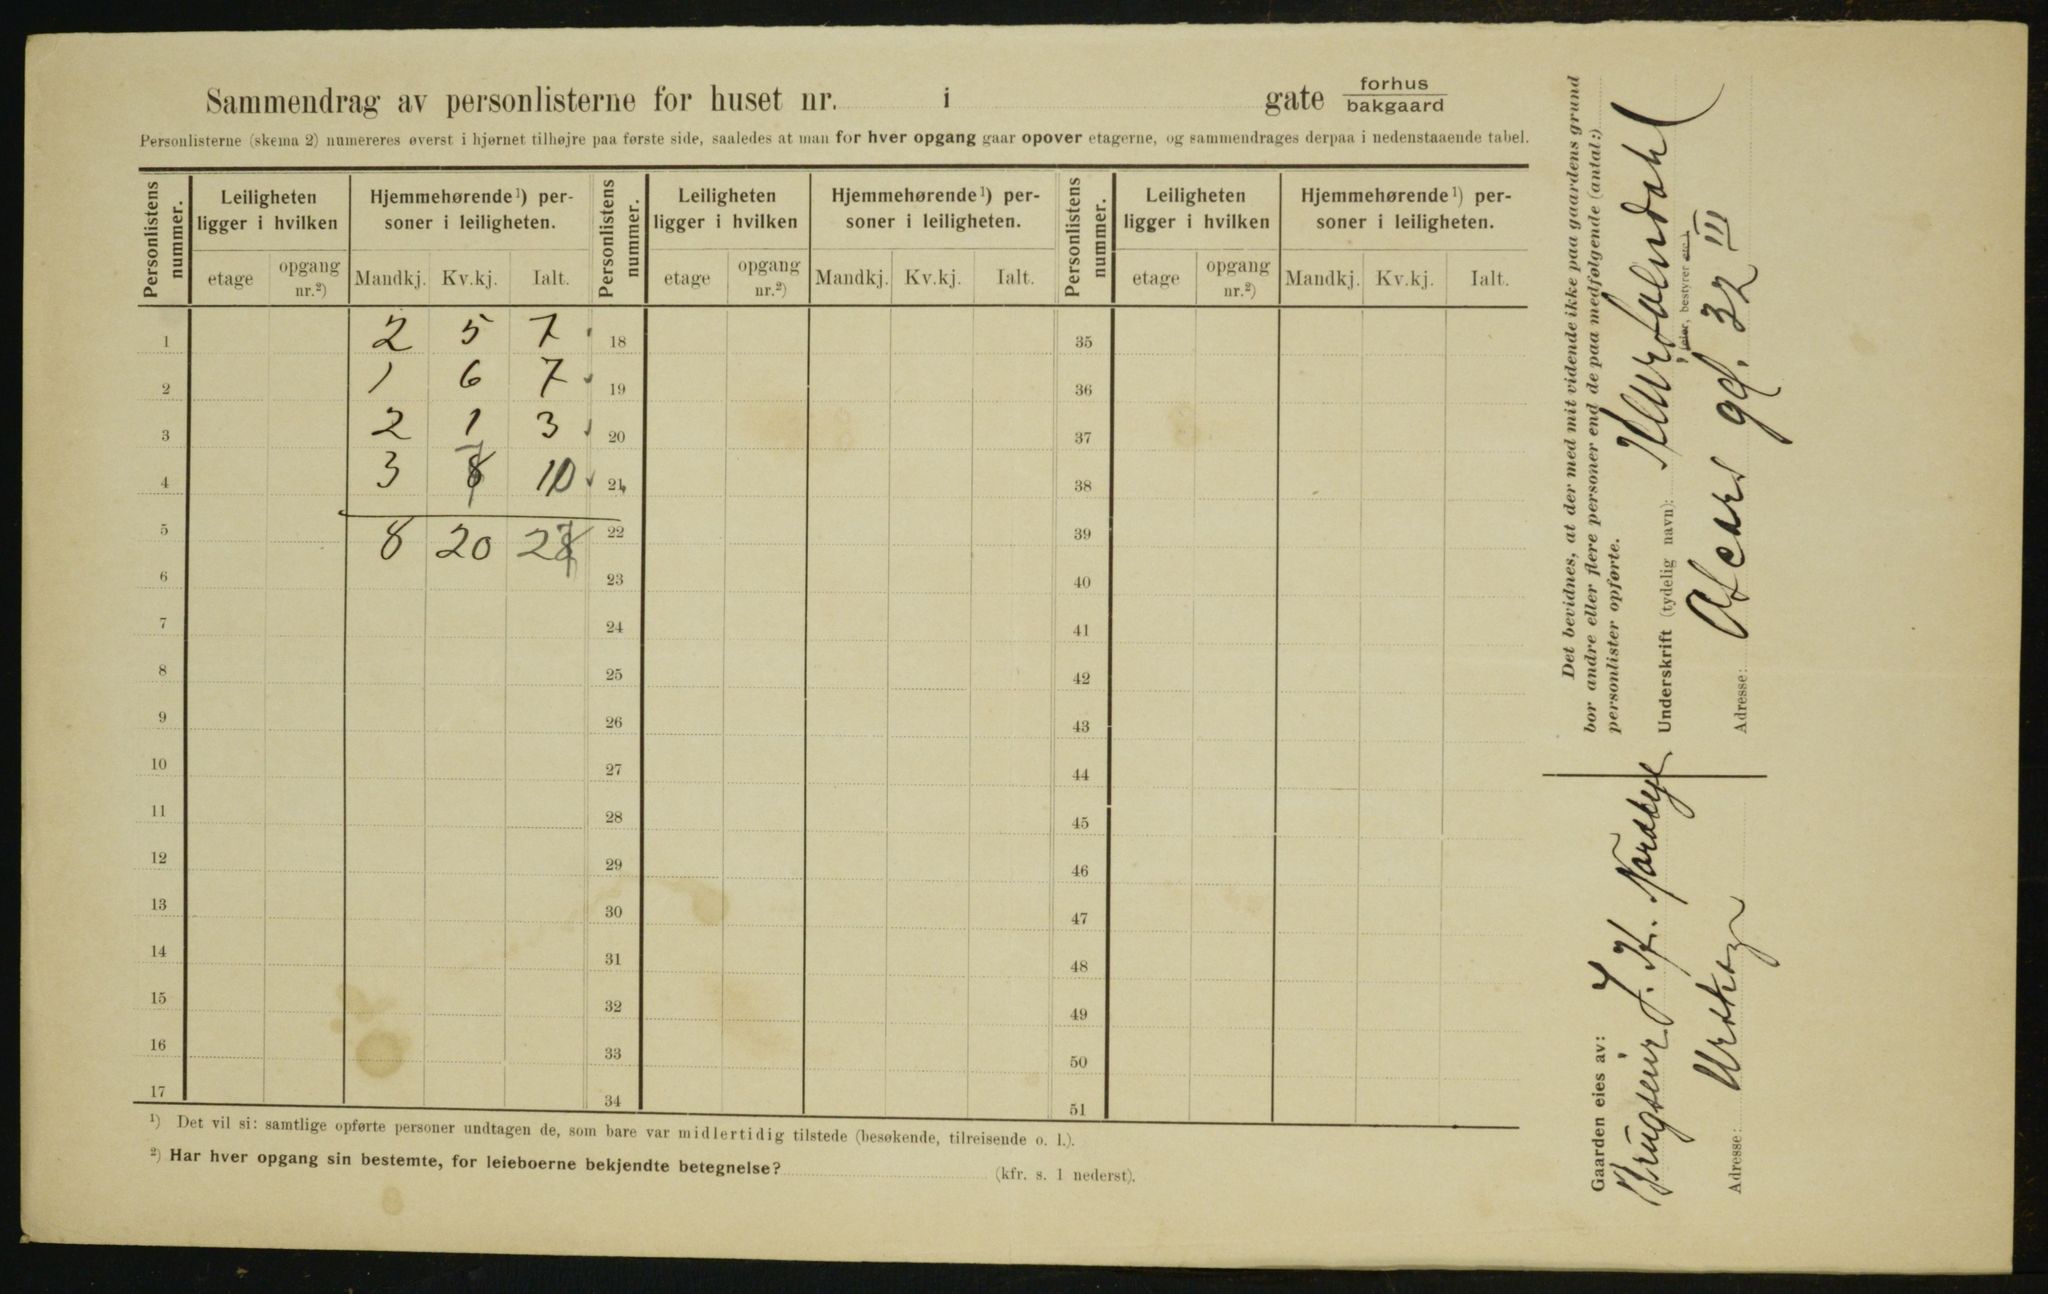 Sammendrag av personlisterne for huset nr. i gate forhus
bakgaard
Personlisterne (skema 2) numereres øverst i hjørnet tilhøjre paa første side, saaledes at man for hver opgang gaar opover etagerne, og sammendrages derpaa i nedenstaaende tabel.
Personlistens nummer. Leiligheten ligger i hvilken Hjemmehørende ¹) personer i leiligheten. Personlistens nummer. Leiligheten ligger i hvilken Hjemmehørende ¹) personer i leiligheten. Personlistens nummer. Leiligheten ligger i hvilken Hjemmehørende ¹) personer i leiligheten.
etage opgang nr.²) Mandkj. Kv.kj. Ialt. etage opgang nr.²) Mandkj. Kv.kj. Ialt. etage opgang nr.²) Mandkj. Kv.kj. Ialt.
1 2 5 7 18 35
2 1 6 7 19 36
3 2 1 3 20 37
4 3 7 10 21 38
5 8 20 27 22 39
6 23 40
7 24 41
8 25 42
9 26 43
10 27 44
11 28 45
12 29 46
13 30 47
14 31 48
15 32 49
16 33 50
17 34 51
¹) Det vil si: samtlige opførte personer undtagen de, som bare var midlertidig tilstede (besøkende, tilreisende o. l.).
²) Har hver opgang sin bestemte, for leieboerne bekjendte betegnelse? (kfr. s. 1 nederst).
Det bevidnes, at der med mit vidende ikke paa gaardens grund
bor andre eller flere personer end de paa medfølgende (antal:)
personlister opførte.
Underskrift (tydelig navn):
bestyrer
Adresse: gd. 32 III
Gaarden eies av:
J. H.
Adresse: